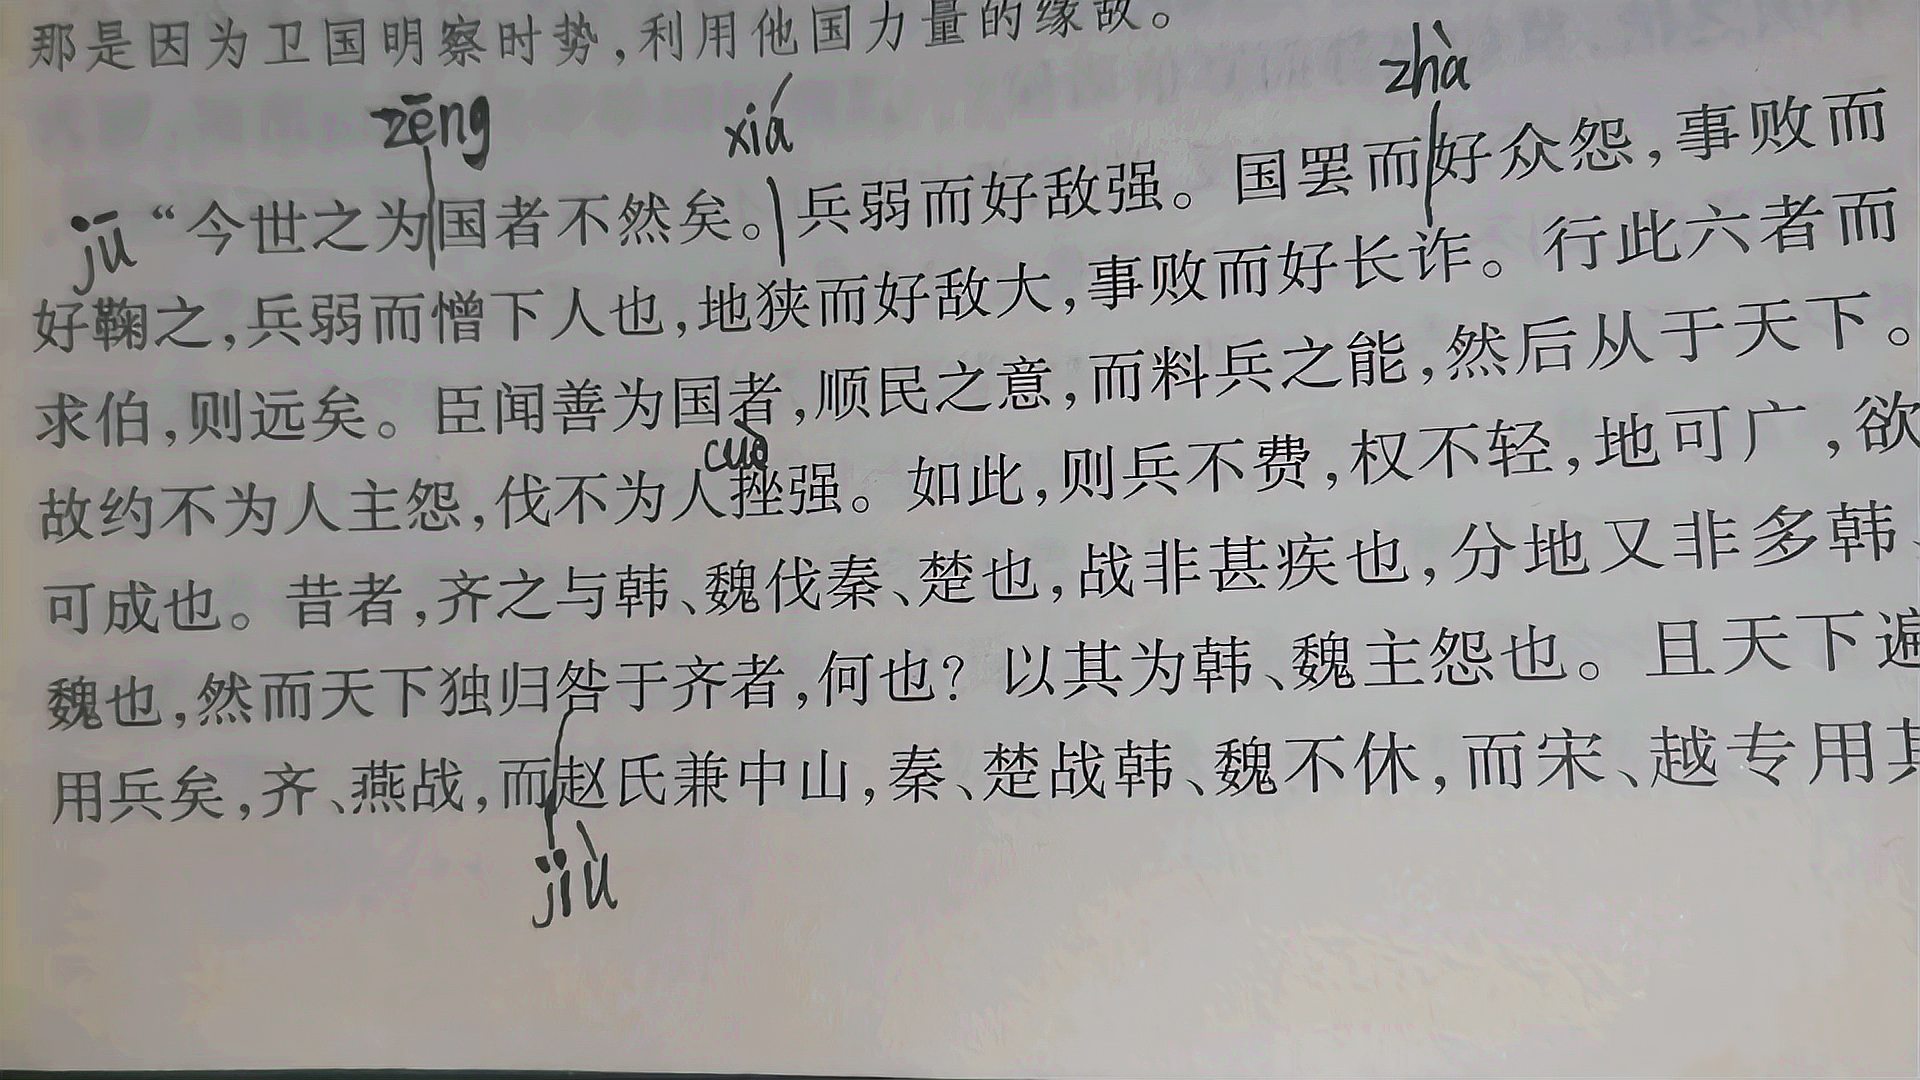 那是因为卫国明察时势,利用他国力量的缘故。
zēng xiá zhà
jū “今世之为国者不然矣。兵弱而好敌强。国罢而好众怨,事败而
好鞠之,兵弱而憎下人也,地狭而好敌大,事败而好长诈。行此六者而
求伯,则远矣。臣闻善为国者,顺民之意,而料兵之能,然后从于天下。
cuò
故约不为人主怨,伐不为人挫强。如此,则兵不费,权不轻,地可广,欲
可成也。昔者,齐之与韩、魏伐秦、楚也,战非甚疾也,分地又非多韩、
魏也,然而天下独归咎于齐者,何也?以其为韩、魏主怨也。且天下遍
用兵矣,齐、燕战,而赵氏兼中山,秦、楚战韩、魏不休,而宋、越专用其
jiù